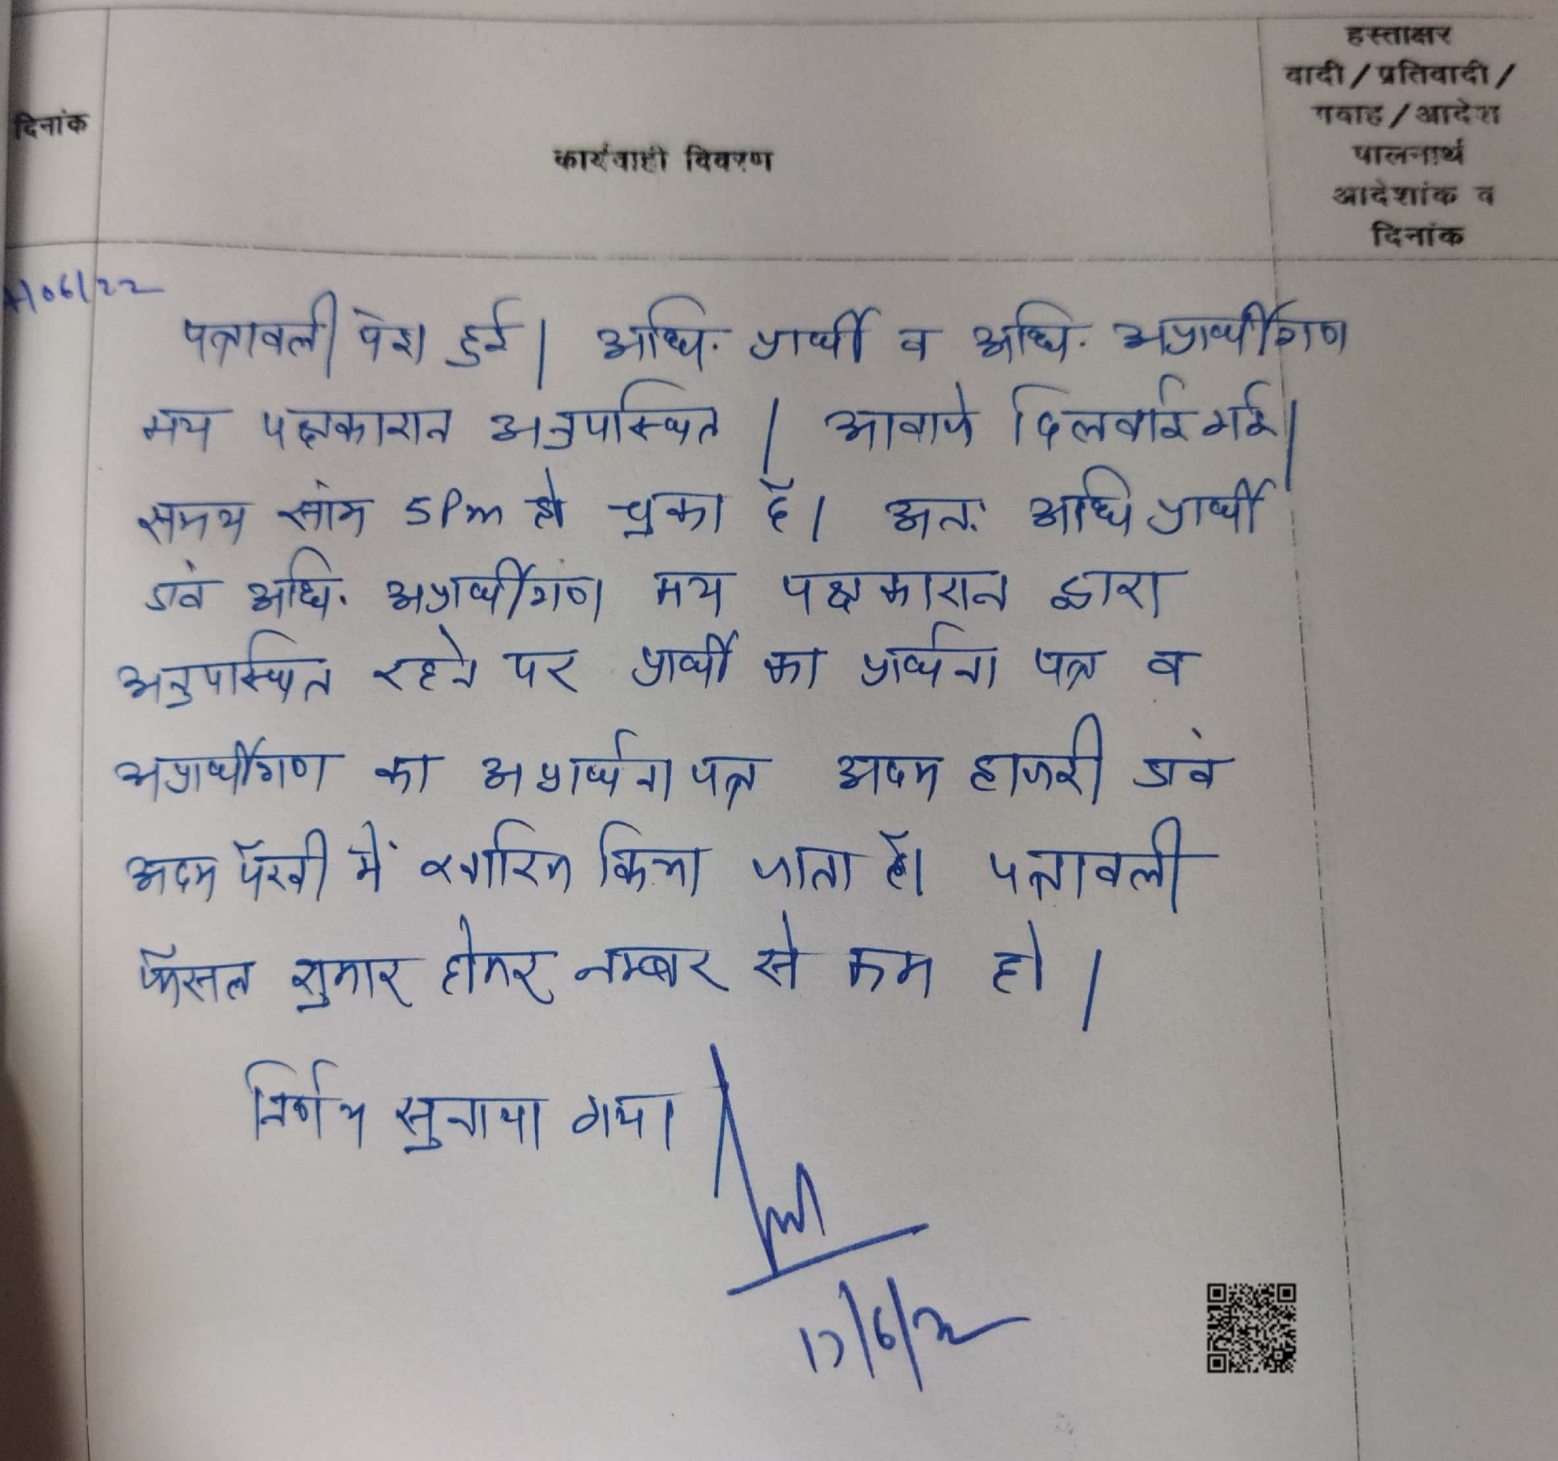 दिनांक
कार्यवाही विवरण
हस्ताक्षर
वादी / प्रतिवादी /
गवाह / आदेश
पालनार्थ
आदेशांक व
दिनांक
/06/22
पत्रावली पेश हुई। अधि. प्रार्थी व अधि. अप्रार्थीगण
मय पक्षकारान अनुपस्थित । आवाजे दिलवाई गई।
समय सांय 5Pm हो चुका है। अतः अधि प्रार्थी
एवं अधि. अप्रार्थीगण मय पक्षकारान द्वारा
अनुपस्थित रहने पर प्रार्थी का प्रार्थना पत्र व
अप्रार्थीगण का अप्रार्थना पत्र अदम हाजरी एवं
अदम पैरवी में खारिज किया जाता है। पत्रावली
फैसल शुमार होकर नम्बर से कम हो ।
निर्णय सुनाया गया।
17/6/22